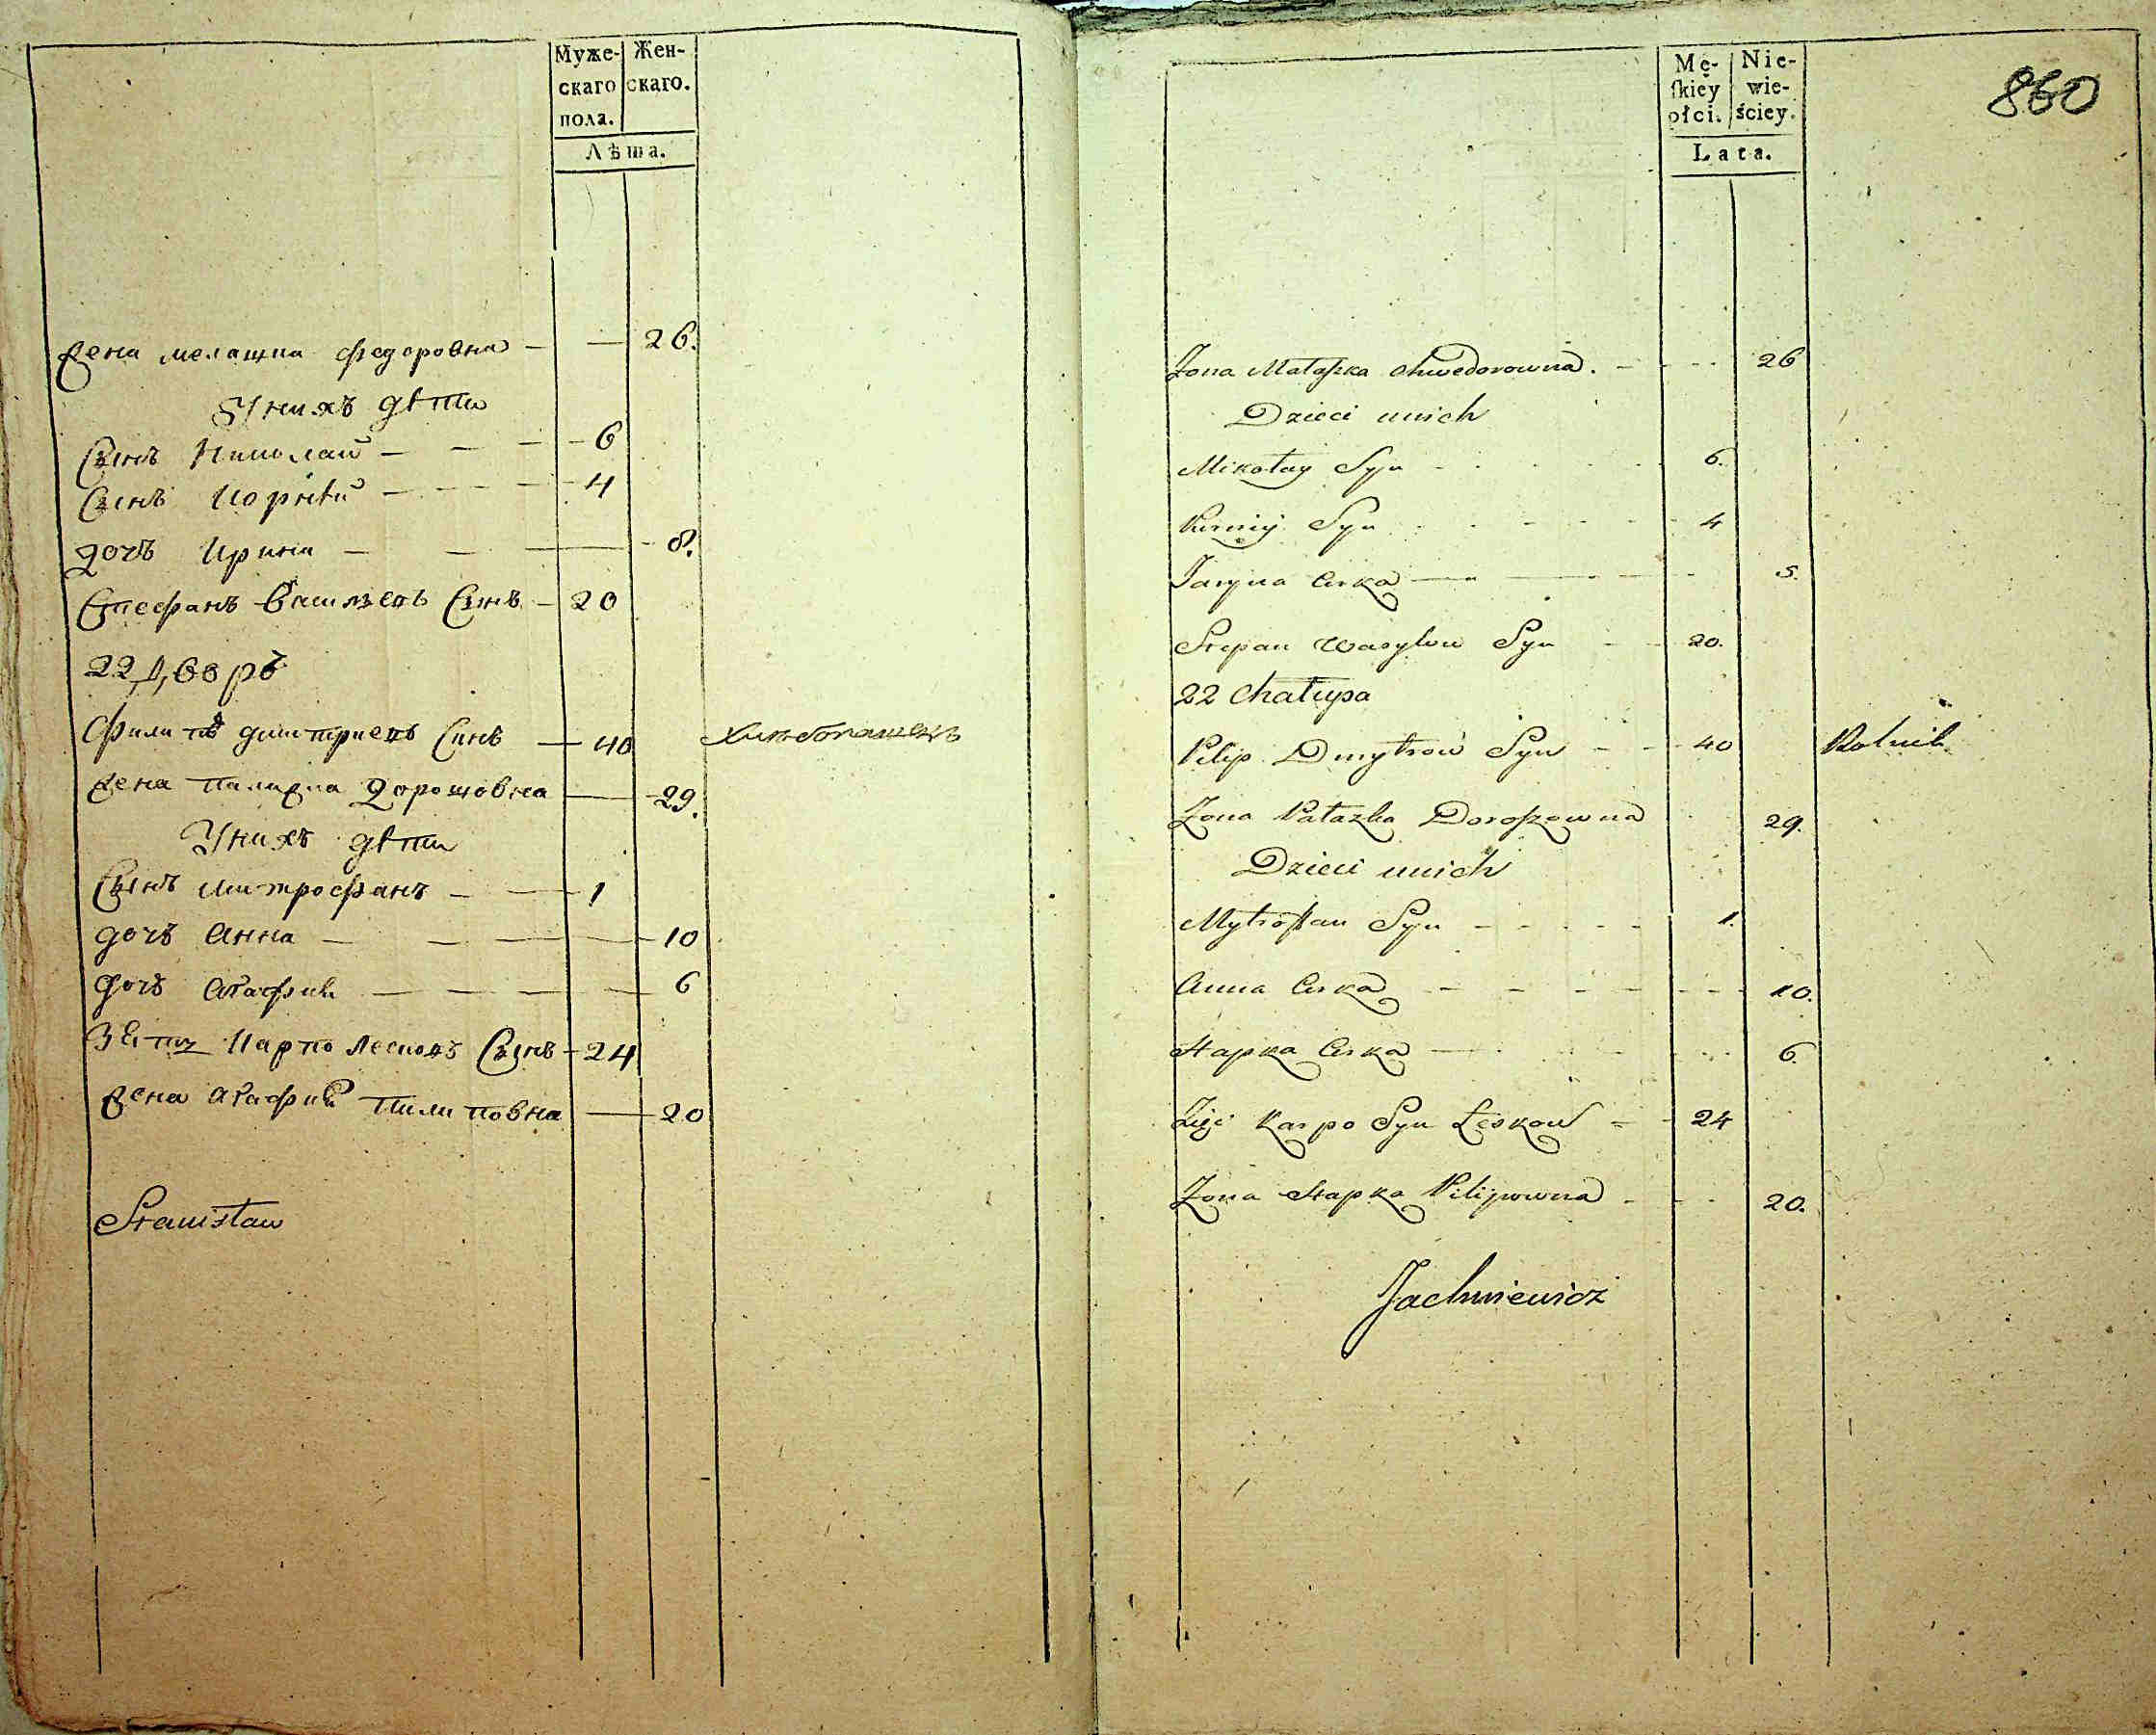 Муже- Жен-
скаго скаго.
пола.
Лѣта.
Жена Мелашка Федоровна — — 26.
У нихъ дѣти
Сынъ Николай — — — 6
Сынъ Корнѣй — — — 4
Дочъ Ирина — — — 8.
Стефанъ Васильевъ Сынъ — 20
22 Дворъ
Филипъ Димитриевъ Синъ — 40 Хлѣбопашецъ
Жена Палажка Дорошовна — 29.
У нихъ дѣти
Сынъ Митрофанъ — — 1
Дочъ Анна — — — 10
Дочъ Агафия — — — — 6
Зять Карпо Лесковъ Сынъ — 24
Жена Агафия Пилиповна — 20
Stanisław
860
Mę- Nie-
ſkiey wie-
ołci. ściey.
Lata.
Żona Małaſzka Chwedorowna. - - - 26
Dzieci unich
Mikołay Syn - - - - 6.
Kurniy Syn - - - - 4
Jaryna Curka — — — 5.
Stepan Wasylow Syn - - 20.
22 Chałupa
Pilip Dmytrow Syn - - - 40 Rolnik
Żona Pałazka Doroſzowna 29.
Dzieci unich
Mytroffan Syn - - - - - 1.
Anna Curka - - - - - - - - 10.
Hapka Curka — - - - - 6.
Zięć Karpo Syn Leskow - - 24
Żona Hapka Pilipowna - - - 20.
Jachniewicz